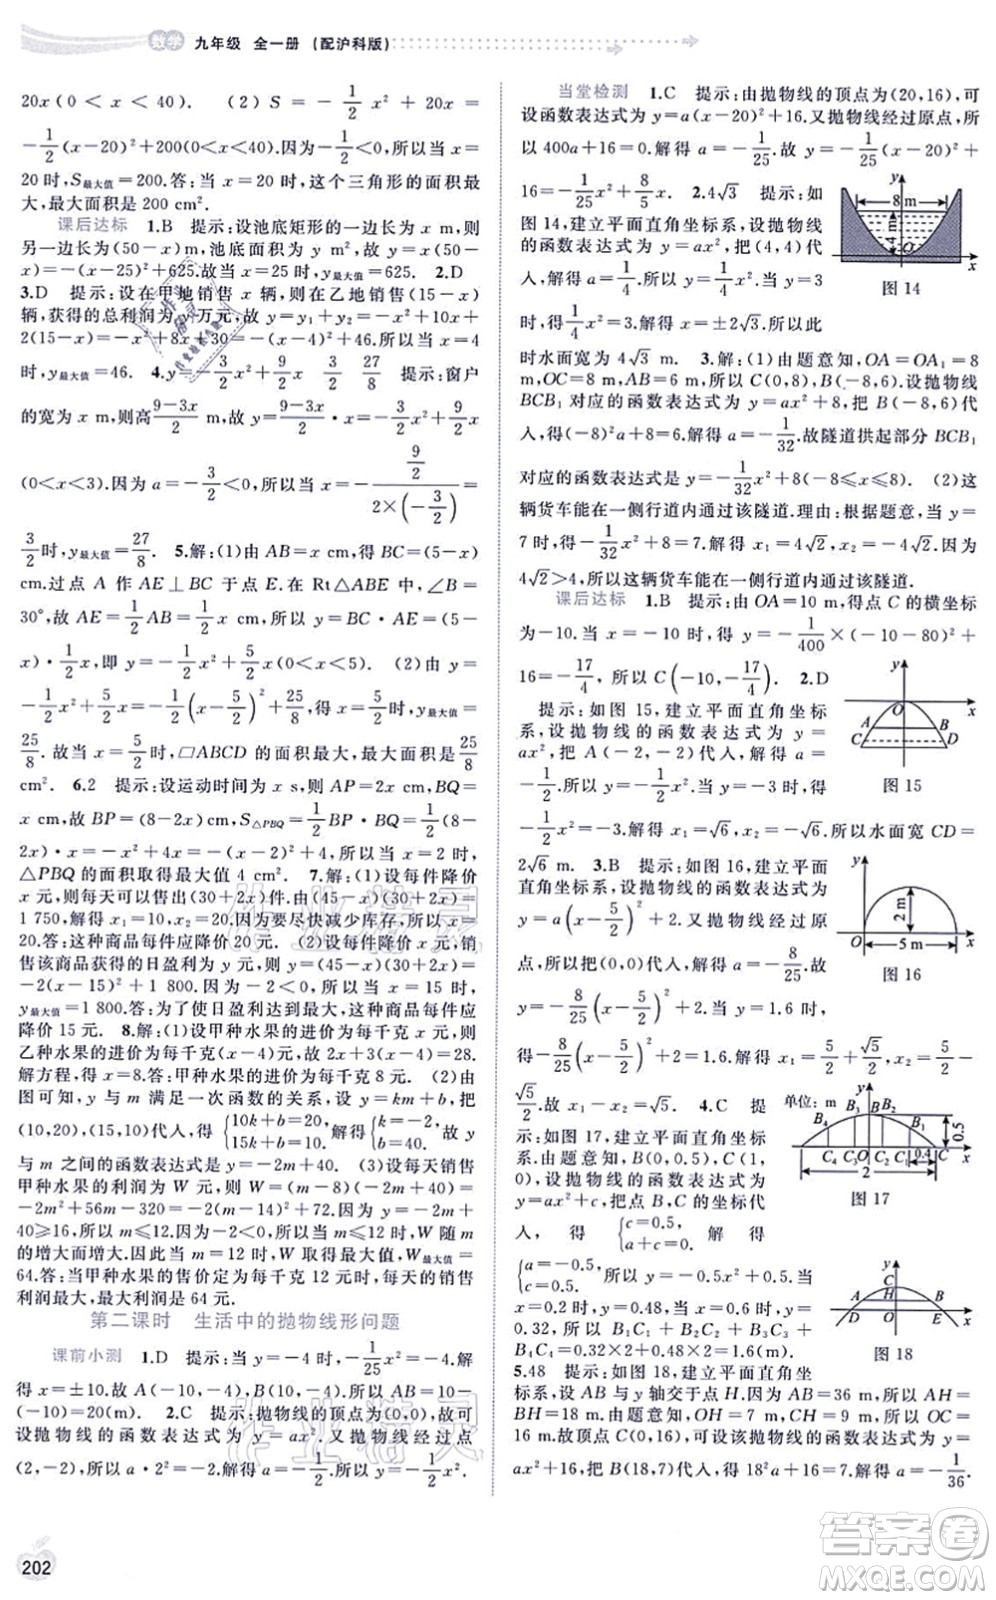 数学 九年级 全一册 (配沪科版)
20x(0＜x＜40). (2)S=-1/2x²+20x=
-1/2(x-20)²+200(0＜x＜40). 因为-1/2＜0,所以当x=
20时,S最大值=200.答:当x=20时,这个三角形的面积最
大,最大面积是200 cm².
课后达标 1.B 提示:设池底矩形的一边长为x m,则
另一边长为(50-x)m,池底面积为y m²,故y=x(50-x)
=-(x-25)²+625.故y最大值=625. 2.D
3.D 提示:设在甲地销售x辆,则在乙地销售(15-x)
辆,获得的总利润为y万元,故y=y₁+y₂=-x²+10x+
2(15-x)=-x²+8x+30=-(x-4)²+46.所以当x=4
时,y最大值=46. 4.y=-3/2x²+9/2x 3/2 27/8 提示:窗户
的宽为x m,则高(9-3x)/2 m.故y=(9-3x)/2·x=-3/2x²+9/2x
(0＜x＜3).因为a=-3/2＜0,所以当x=-(9/2)/(2×(-3/2))=
3/2时,y最大值=27/8. 5.解:(1)由AB=x cm,得BC=(5-x)
cm.过点A作AE⊥BC于点E.在Rt△ABE中,∠B=
30°,故AE=1/2AB=1/2x cm.所以y=BC·AE=(5-
x)·1/2x,即y=-1/2x²+5/2x(0＜x＜5). (2)由y=
-1/2x²+5/2x=-1/2(x-5/2)²+25/8,得当x=5/2时,y最大值=
25/8.故当x=5/2时,□ABCD的面积最大,最大面积是25/8
cm². 6.2 提示:设运动时间为x s,则AP=2x cm,BQ=
x cm.故BP=(8-2x)cm,S△PBQ=1/2BP·BQ=1/2(8-
2x)·x=-x²+4x=-(x-2)²+4.所以当x=2时,
△PBQ的面积取得最大值4 cm². 7.解:(1)设每件商品降
价x元,则每天可以售出(30+2x)件.故(45-x)(30+2x)=
1 750,解得x₁=10,x₂=20.因为要尽快减少库存,所以x=
20.答:这种商品每件应降价20元. (2)设每件降价x元,销
售该商品获得的日盈利为y元,则y=(45-x)(30+2x)=
-2(x-15)²+1 800.因为-2＜0,所以当x=15时,
y最大值=1 800.答:为了使日盈利达到最大,这种商品每件应
降价15元. 8.解:(1)设甲种水果的进价为每千克x元,则
乙种水果的进价为每千克(x+4)元.故2x+3(x+4)=28.
解得x=8.答:甲种水果的进价为每千克8元. (2)由
图可知,y与m满足一次函数的关系,设y=km+b,把
(10,20),(15,10)代入,得{10k+b=20, 15k+b=10.解得{k=-2, b=40.故y
与m之间的函数表达式是y=-2m+40. (3)设每天销售
甲种水果的利润为W元,则W=(m-8)(-2m+40)=
-2m²+56m-320=-2(m-14)²+72.因为y=-2m+
40≥16,所以m≤12.因为-2＜0,所以当m≤12时,W随m
的增大而增大.故当m=12时,W取得最大值,W最大值=
64.答:当甲种水果的售价定为每千克12元时,每天销售的
利润最大,最大利润是64元.
第二课时 生活中的抛物线形问题
课前小测 1.D 提示:当y=-4时,-4=-1/25x².解
得x=±10.故A(-10,-4),B(10,-4).所以AB=10-
(-10)=20(m). 2.C 提示:抛物线的顶点为(0,0),故可
设抛物线的函数表达式为y=ax².又抛物线经过点
(2,-2),故a·2²=-2.解得a=-1/2.所以y=-1/2x².
当堂检测 1.C 提示:由抛物线的顶点为(20,16),可
设函数表达式为y=a(x-20)²+16.又抛物线经过原点,所
以400a+16=0.解得a=-1/25.故y=-1/25(x-20)²+
16=-1/25x²+8/5x. 2.4√3 提示:如
图14,建立平面直角坐标系,设抛物线的
函数表达式为y=ax².把(4,4)代
入,解得a=1/4.所以y=1/4x².当y=3时,
1/4x²=3.解得x=±2√3.所以此
时水面宽为4√3 m. 3.解:(1)由题意知,OA=OA₁=8
m,OC=8 m,AB=6 m.所以C(0,8),B(-8,6).设抛物线
BCB₁对应的函数表达式为y=ax²+8,把B(-8,6)代
入,得(-8)²a+8=6.解得a=-1/32.故隧道拱起部分BCB₁
对应的函数表达式是y=-1/32x²+8(-8≤x≤8). (2)这
辆货车能在一侧行道内通过该隧道.理由:根据题意,当y=
7时,得-1/32x²+8=7.解得x₁=4√2,x₂=-4√2.因为
4√2＞4,所以这辆货车能在一侧行道内通过该隧道.
课后达标 1.B 提示:由OA=10 m,得点C的横坐标
为-10.当x=-10时,y=-1/400×(-10-80)²+
16=-17/4,所以C(-10,-17/4). 2.D
提示:如图15,建立平面直角坐标
系,设抛物线的函数表达式为y=
ax²,把A(-2,-2)代入,解得a=
-1/2.所以y=-1/2x².当y=-3时,
-1/2x²=-3.解得x₁=√6,x₂=-√6.所以水面宽CD=
2√6 m. 3.B 提示:如图16,建立平面
直角坐标系,设抛物线的函数表达式为
y=a(x-5/2)²+2.又抛物线经过原
点,所以把(0,0)代入,得a=-8/25.故
y=-8/25(x-5/2)²+2.当y=1.6时,
得-8/25(x-5/2)²+2=1.6.解得x₁=5/2+√5/2,x₂=5/2-
√5/2.故x₁-x₂=√5. 4.C 提
示:如图17,建立平面直角坐标系.
由题意知,B(0,0.5),C(1,
0).设抛物线的函数表达式为
y=ax²+c,把点B,C的坐标代
入,得{c=0.5, a+c=0.解得
{a=-0.5, c=0.5.所以y=-0.5x²+0.5.当x=
0.2时,y=0.48.当x=0.6时,y=
0.32.所以B₁C₁+B₂C₂+B₃C₃+
B₄C₄=0.32×2+0.48×2=1.6(m).
5.48 提示:如图18,建立平面直角坐
标系,设AB与y轴交于点H.因为AB=36 m,所以AH=
BH=18 m.由题意知,OH=7 m,CH=9 m,所以OC=
16 m.故D(0,0),C(0,16),可设该抛物线的函数表达式为y=
ax²+16.把B(18,7)代入,得18²a+16=7.解得a=-1/36.
y
8 m
4 m
O
x
图14
y
O
x
A B
C D
图15
y
2 m
O
5 m
x
图16
单位:m
y
B₄ B₃ B B₂ B₁
0.5
C₄ C₃ O C₂ C₁ 0.4 C x
2
图17
y
C
A H B
D O E x
图18
作业精灵
作业精灵
202
答案圈
MXQE.COM